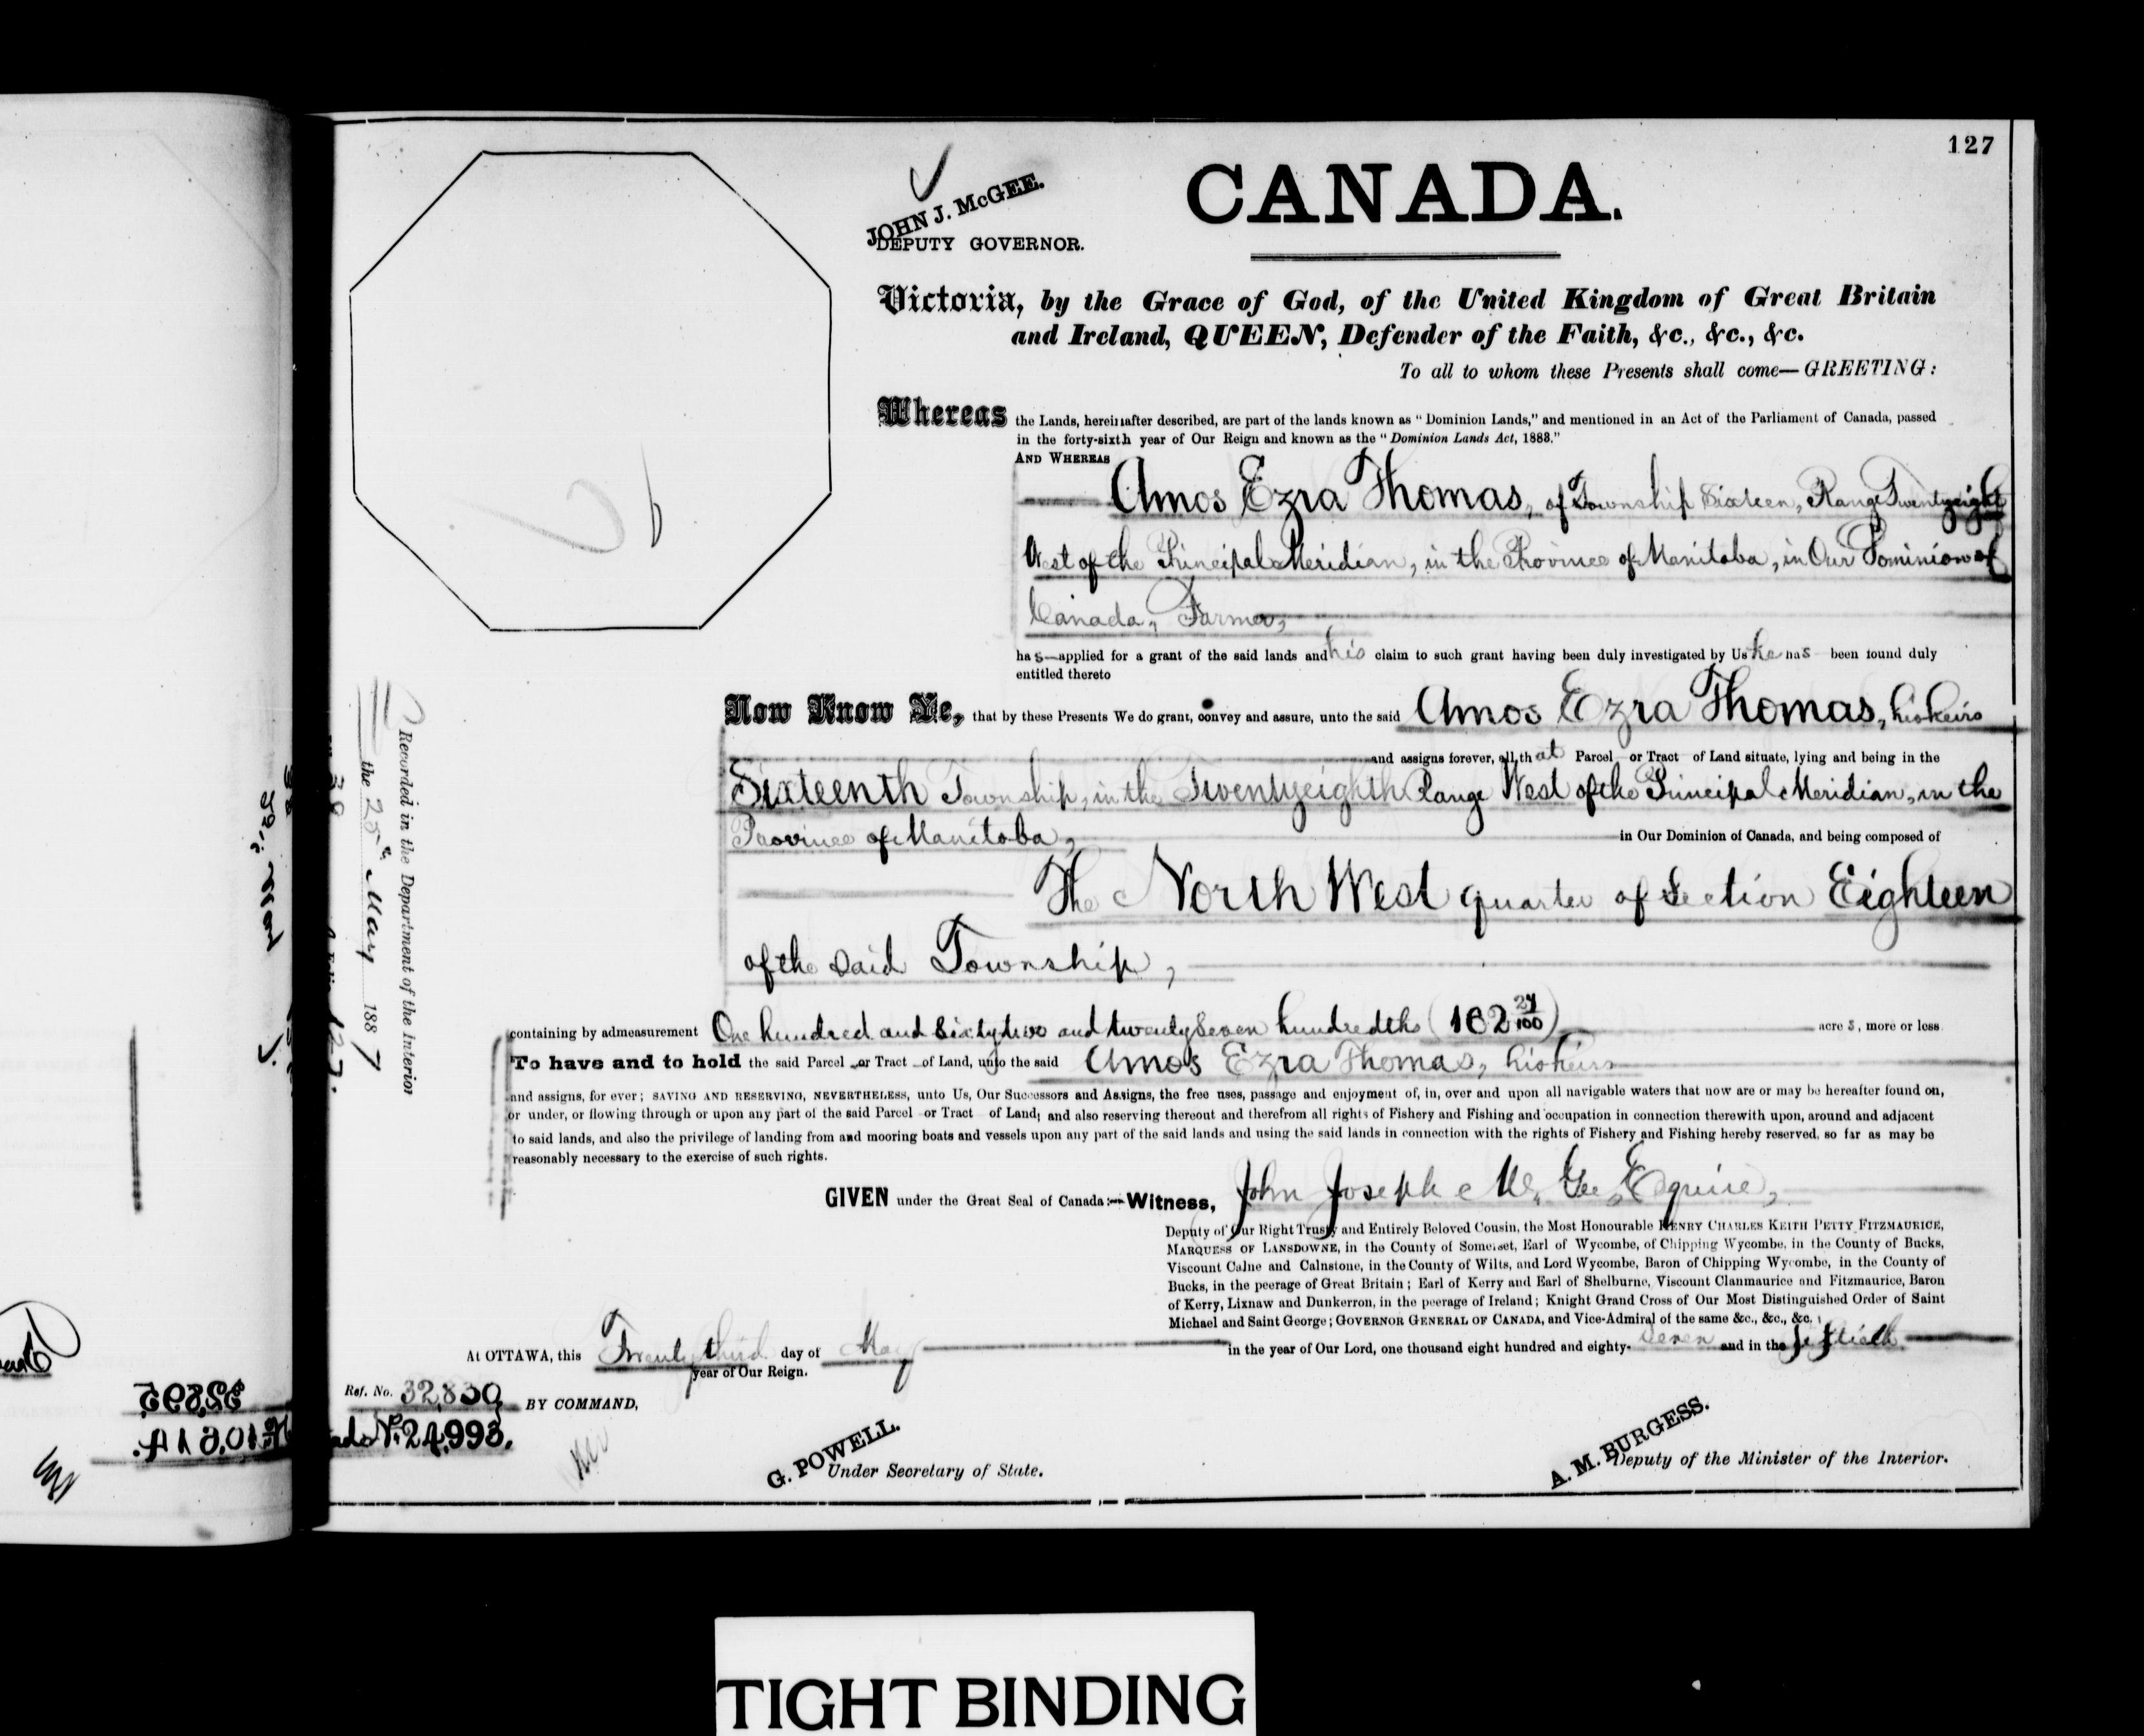 127
CANADA.
JOHN J. McGEE.
DEPUTY GOVERNOR.
Victoria, by the Grace of God, of the United Kingdom of Great Britain
and Ireland, QUEEN, Defender of the Faith, &c., &c., &c.
To all to whom these Presents shall come—GREETING:
Whereas the Lands, hereinafter described, are part of the lands known as "Dominion Lands," and mentioned in an Act of the Parliament of Canada, passed
in the forty-sixth year of Our Reign and known as the "Dominion Lands Act, 1883."
AND WHEREAS
Amos Ezra Thomas, of Township Sixteen, Range Twentyeight
West of the Principal Meridian, in the Province of Manitoba, in Our Dominion of
Canada, Farmer,
has applied for a grant of the said lands and his claim to such grant having been duly investigated by Us he has been found duly
entitled thereto
Now Know Ye, that by these Presents We do grant, convey and assure, unto the said Amos Ezra Thomas, his heirs
and assigns forever, all that Parcel or Tract of Land situate, lying and being in the
Sixteenth Township, in the Twentyeighth Range West of the Principal Meridian, in the
Province of Manitoba, in Our Dominion of Canada, and being composed of
The North West quarter of Section Eighteen
of the said Township,
containing by admeasurement One hundred and Sixtytwo and twentyseven hundredths (162 27/100) acres, more or less
To have and to hold the said Parcel or Tract of Land, unto the said Amos Ezra Thomas, his heirs
and assigns, for ever; SAVING AND RESERVING, NEVERTHELESS, unto Us, Our Successors and Assigns, the free uses, passage and enjoyment of, in, over and upon all navigable waters that now are or may be hereafter found on,
or under, or flowing through or upon any part of the said Parcel or Tract of Land; and also reserving thereout and therefrom all rights of Fishery and Fishing and occupation in connection therewith upon, around and adjacent
to said lands, and also the privilege of landing from and mooring boats and vessels upon any part of the said lands and using the said lands in connection with the rights of Fishery and Fishing hereby reserved, so far as may be
reasonably necessary to the exercise of such rights.
GIVEN under the Great Seal of Canada:—Witness, John Joseph McGee, Esquire,
Deputy of Our Right Trusty and Entirely Beloved Cousin, the Most Honourable HENRY CHARLES KEITH PETTY FITZMAURICE,
MARQUESS OF LANSDOWNE, in the County of Somerset, Earl of Wycombe, of Chipping Wycombe, in the County of Bucks,
Viscount Calne and Calnstone, in the County of Wilts, and Lord Wycombe, Baron of Chipping Wycombe, in the County of
Bucks, in the peerage of Great Britain; Earl of Kerry and Earl of Shelburne, Viscount Clanmaurice and Fitzmaurice, Baron
of Kerry, Lixnaw and Dunkerron, in the peerage of Ireland; Knight Grand Cross of Our Most Distinguished Order of Saint
Michael and Saint George; GOVERNOR GENERAL OF CANADA, and Vice-Admiral of the same &c., &c., &c.
At OTTAWA, this Twenty third day of May in the year of Our Lord, one thousand eight hundred and eighty-seven and in the fiftieth
year of Our Reign.
Ref. No. 32,830
BY COMMAND,
G. POWELL.
Under Secretary of State.
A. M. BURGESS.
Deputy of the Minister of the Interior.
Recorded in the Department of the Interior
the 25th May 1887
TIGHT BINDING